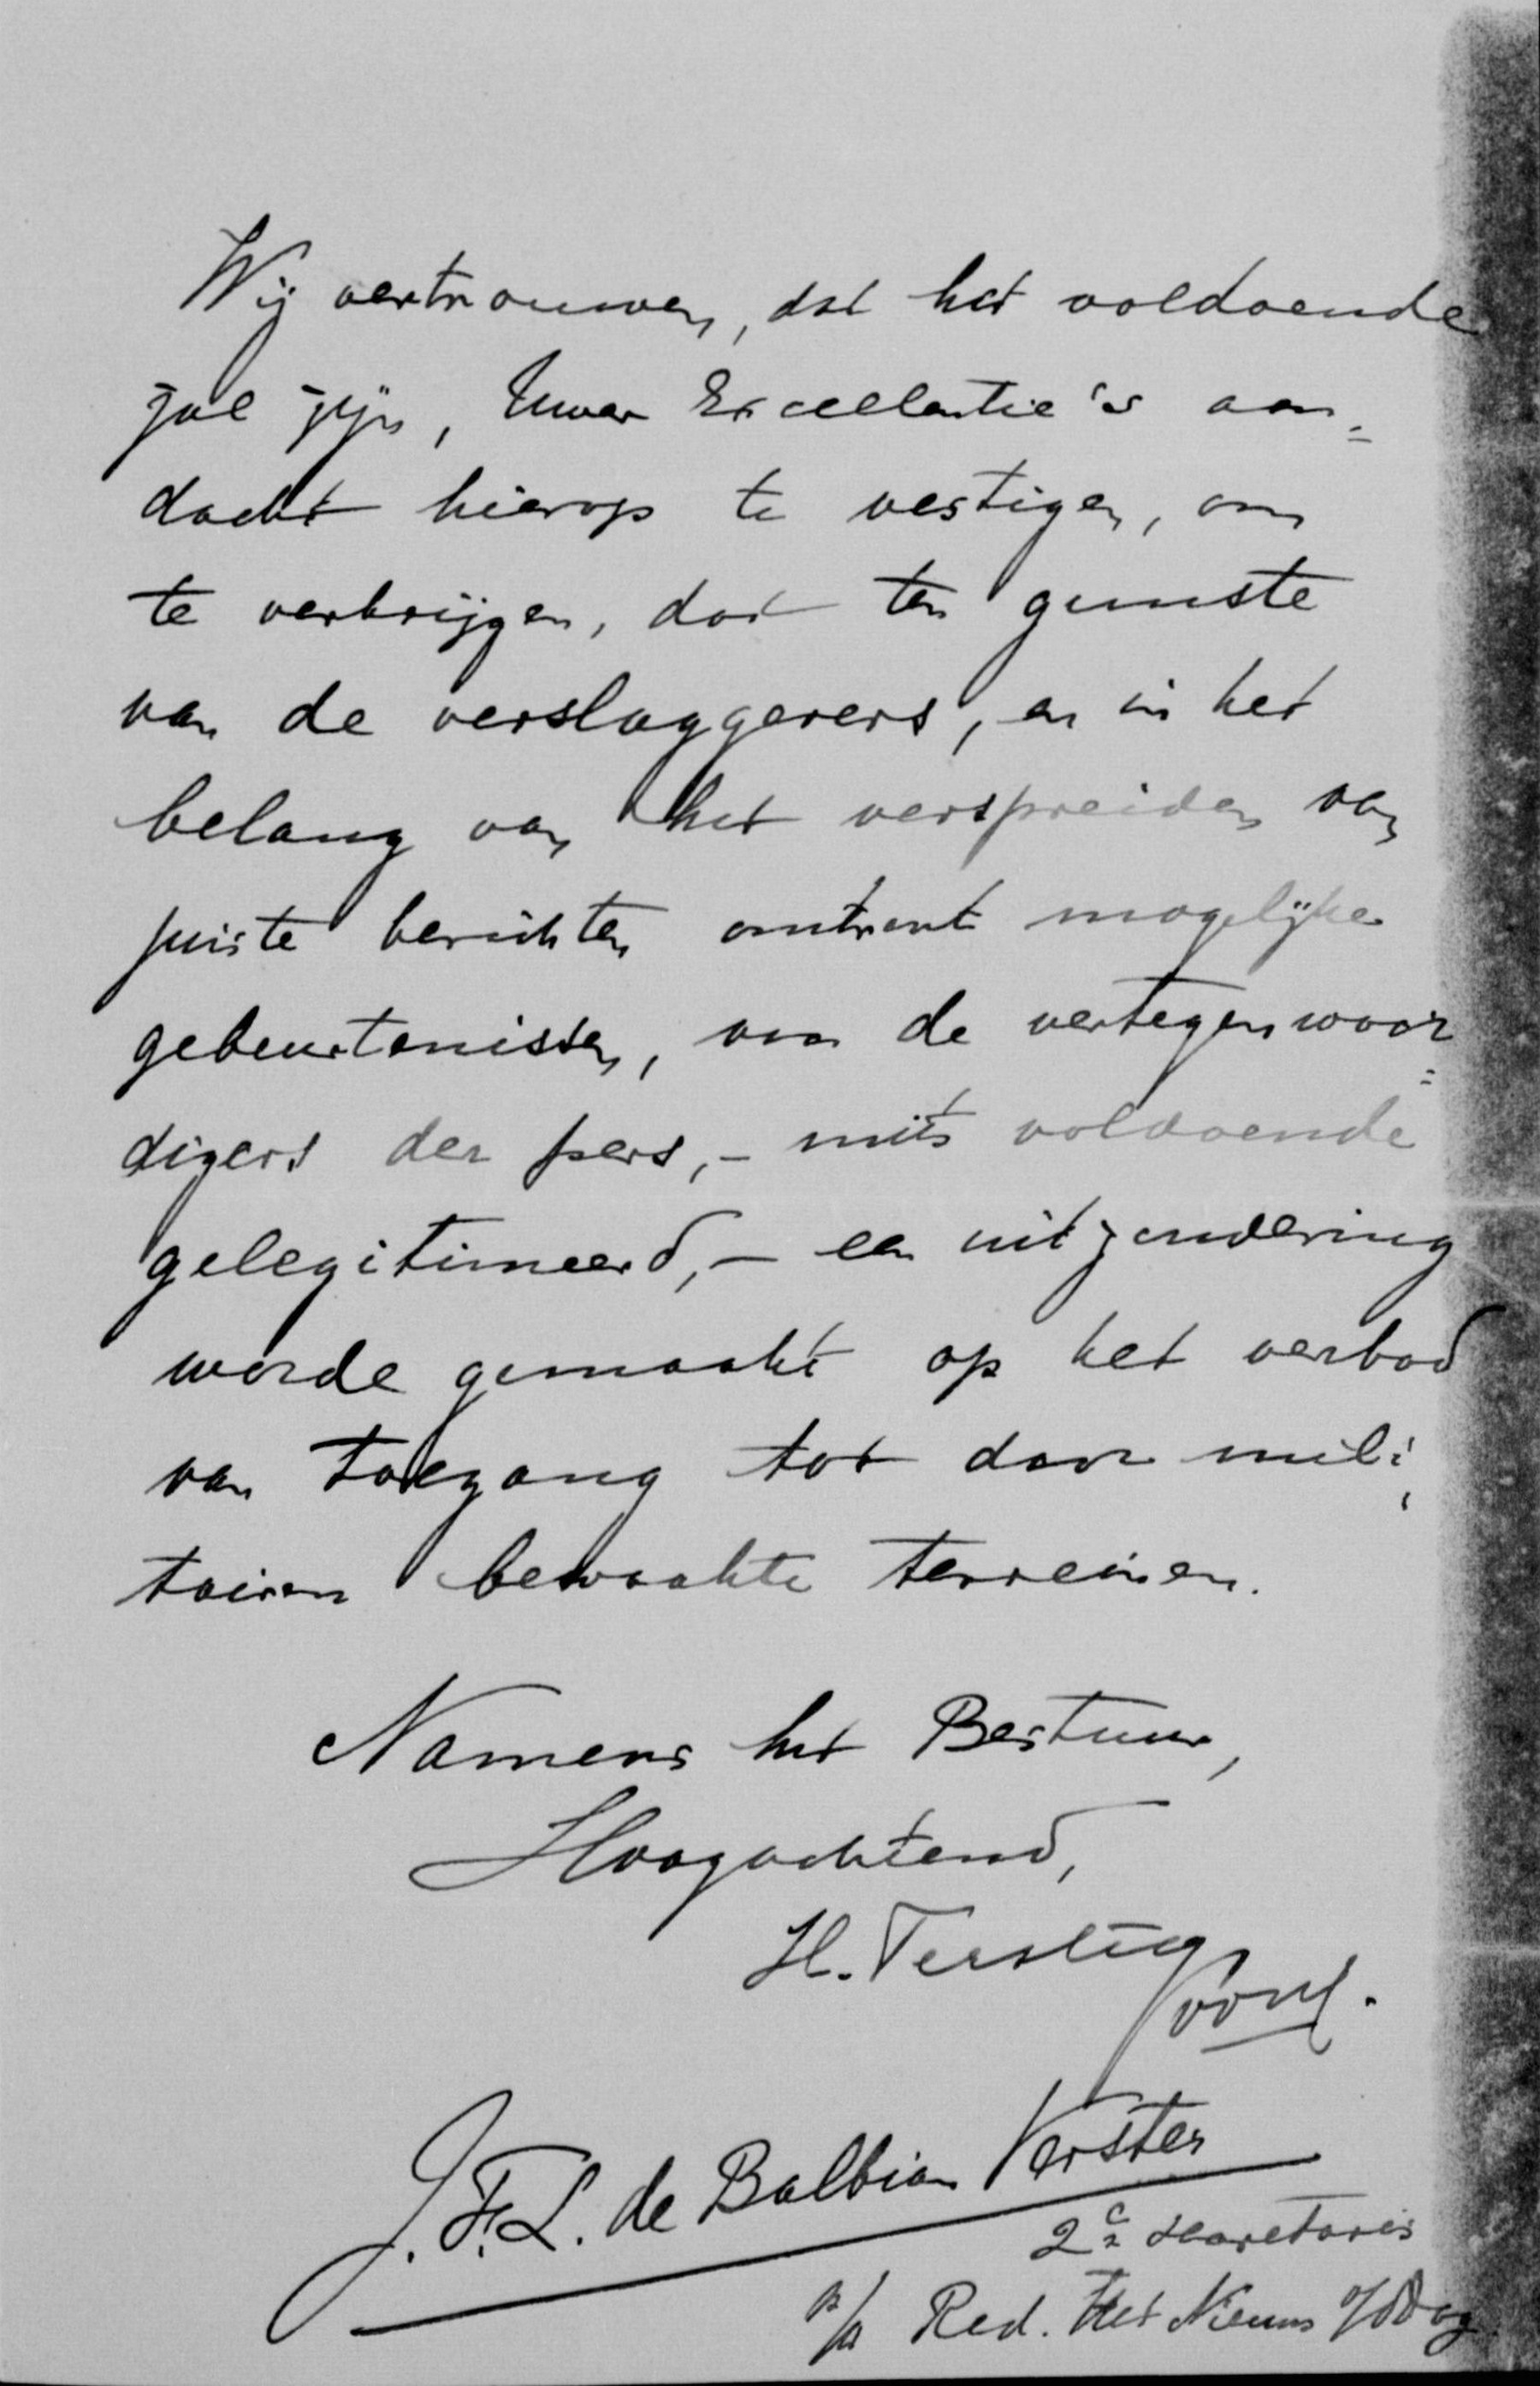 Wij vertrouwen, dat het voldoende
zal zijn, Uwer Excellentie's aan=
dacht hierop te vestigen, om
te verkrijgen, dat ten gunste
van de verslaggevers, en in het
belang van het verspreiden van
juiste berichten omtrent mogelijke
gebeurtenissen, voor de vertegenwoor=
digers der pers, - mits voldoende
gelegitimeerd, - een uitzondering
worde gemaakt op het verbod
van toegang tot door mili=
tairen bewaakte terreinen.
Namens het Bestuur,
Hoogachtend,
H. Terstieg
Voorz.
J. F. L. de Balbian Verster
2e secretaris
p/a Red. Het Nieuws v/d Dag